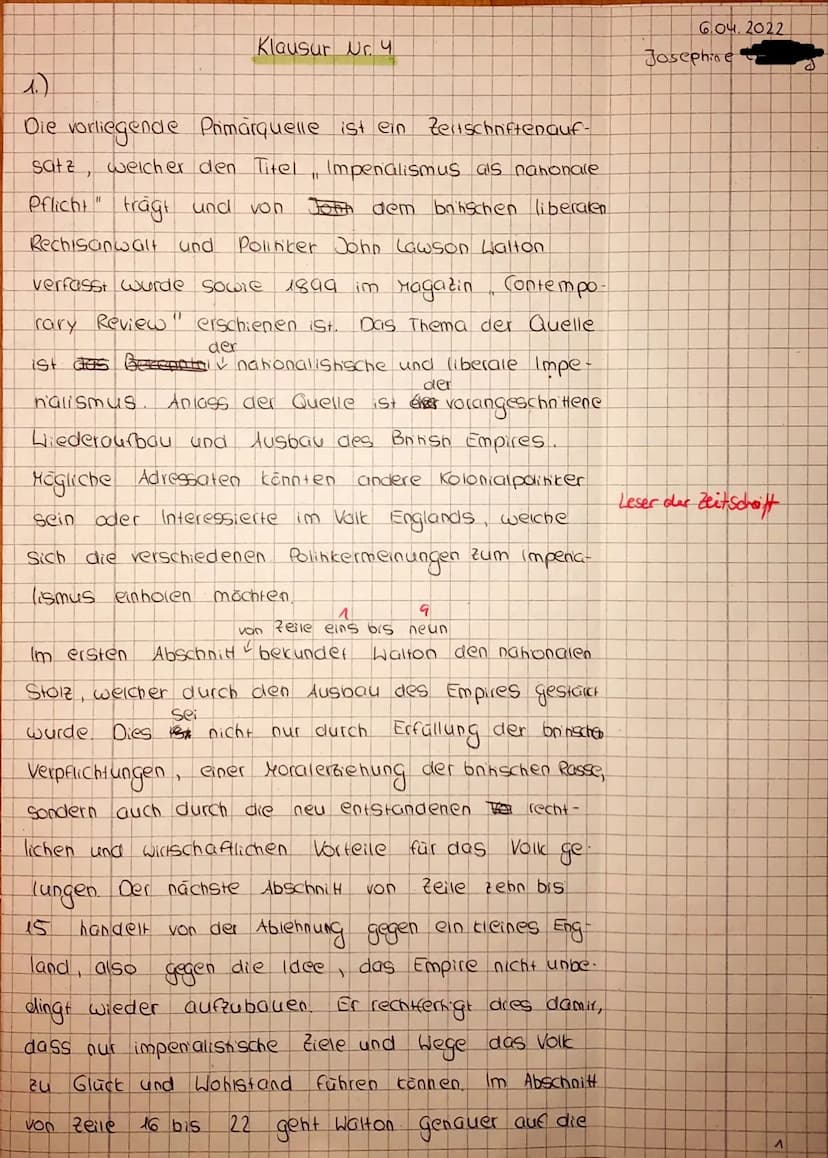 6.04.2022
Klausur Nr. 4
Josephine
1.)
Die vorliegende Primärquelle ist ein Zeitschriftenauf-
satz, welcher den Titel „Imperialismus als nationale
Pflicht" trägt und von John dem britischen liberalen
Rechtsanwalt und Politiker John Lawson Walton
verfasst wurde sowie 1899 im Magazin „Contempo-
rary Review" erschienen ist. Das Thema der Quelle
der
ist das nationalistische und liberale Impe-
der
rialismus. Anlass der Quelle ist vorangeschrittene
Wiederaufbau und Ausbau des British Empires.
Mögliche Adressaten könnten andere Kolonialpolitiker
Leser der Zeitschrift
sein oder Interessierte im Volk Englands, welche
sich die verschiedenen Politikermeinungen zum Imperia-
lismus einholen möchten.
1 9
von Zeile eins bis neun
Im ersten Abschnitt bekundet Walton den nationalen
Stolz, welcher durch den Ausbau des Empires gestärkt
sei
wurde. Dies ist nicht nur durch Erfüllung der britischen
Verpflichtungen, einer Moralerziehung der britischen Rasse,
sondern auch durch die neu entstandenen recht-
lichen und wirtschaftlichen Vorteile für das Volk ge-
lungen. Der nächste Abschnitt von Zeile zehn bis
15 handelt von der Ablehnung gegen ein kleines Eng-
land, also gegen die Idee, das Empire nicht unbe-
dingt wieder aufzubauen. Er rechtfertigt dies damit,
dass nur imperialistische Ziele und Wege das Volk
zu Glück und Wohlstand führen können. Im Abschnitt
von Zeile 16 bis 22 geht Walton genauer auf die
1